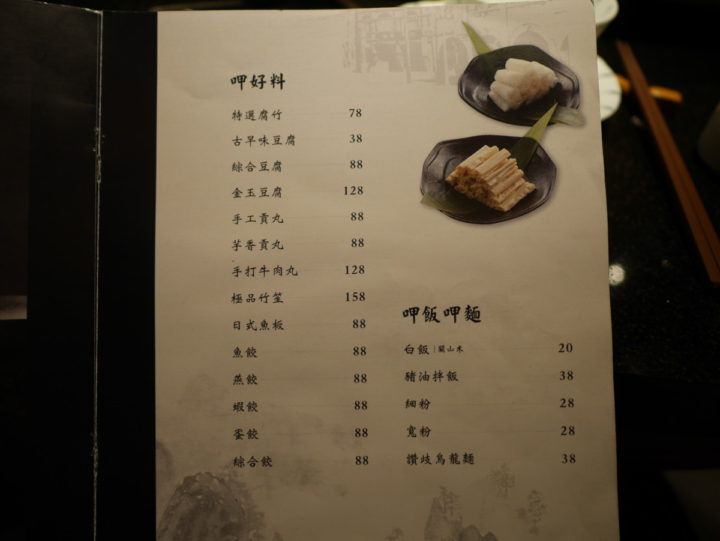 呷好料
特選腐竹 78
古早味豆腐 38
綜合豆腐 88
金玉豆腐 128
手工貢丸 88
芋香貢丸 88
手打牛肉丸 128
極品竹笙 158
日式魚板 88
魚餃 88
燕餃 88
蝦餃 88
蛋餃 88
綜合餃 88
呷飯呷麵
白飯|關山米 20
豬油拌飯 38
細粉 28
寬粉 28
讚歧烏龍麵 38